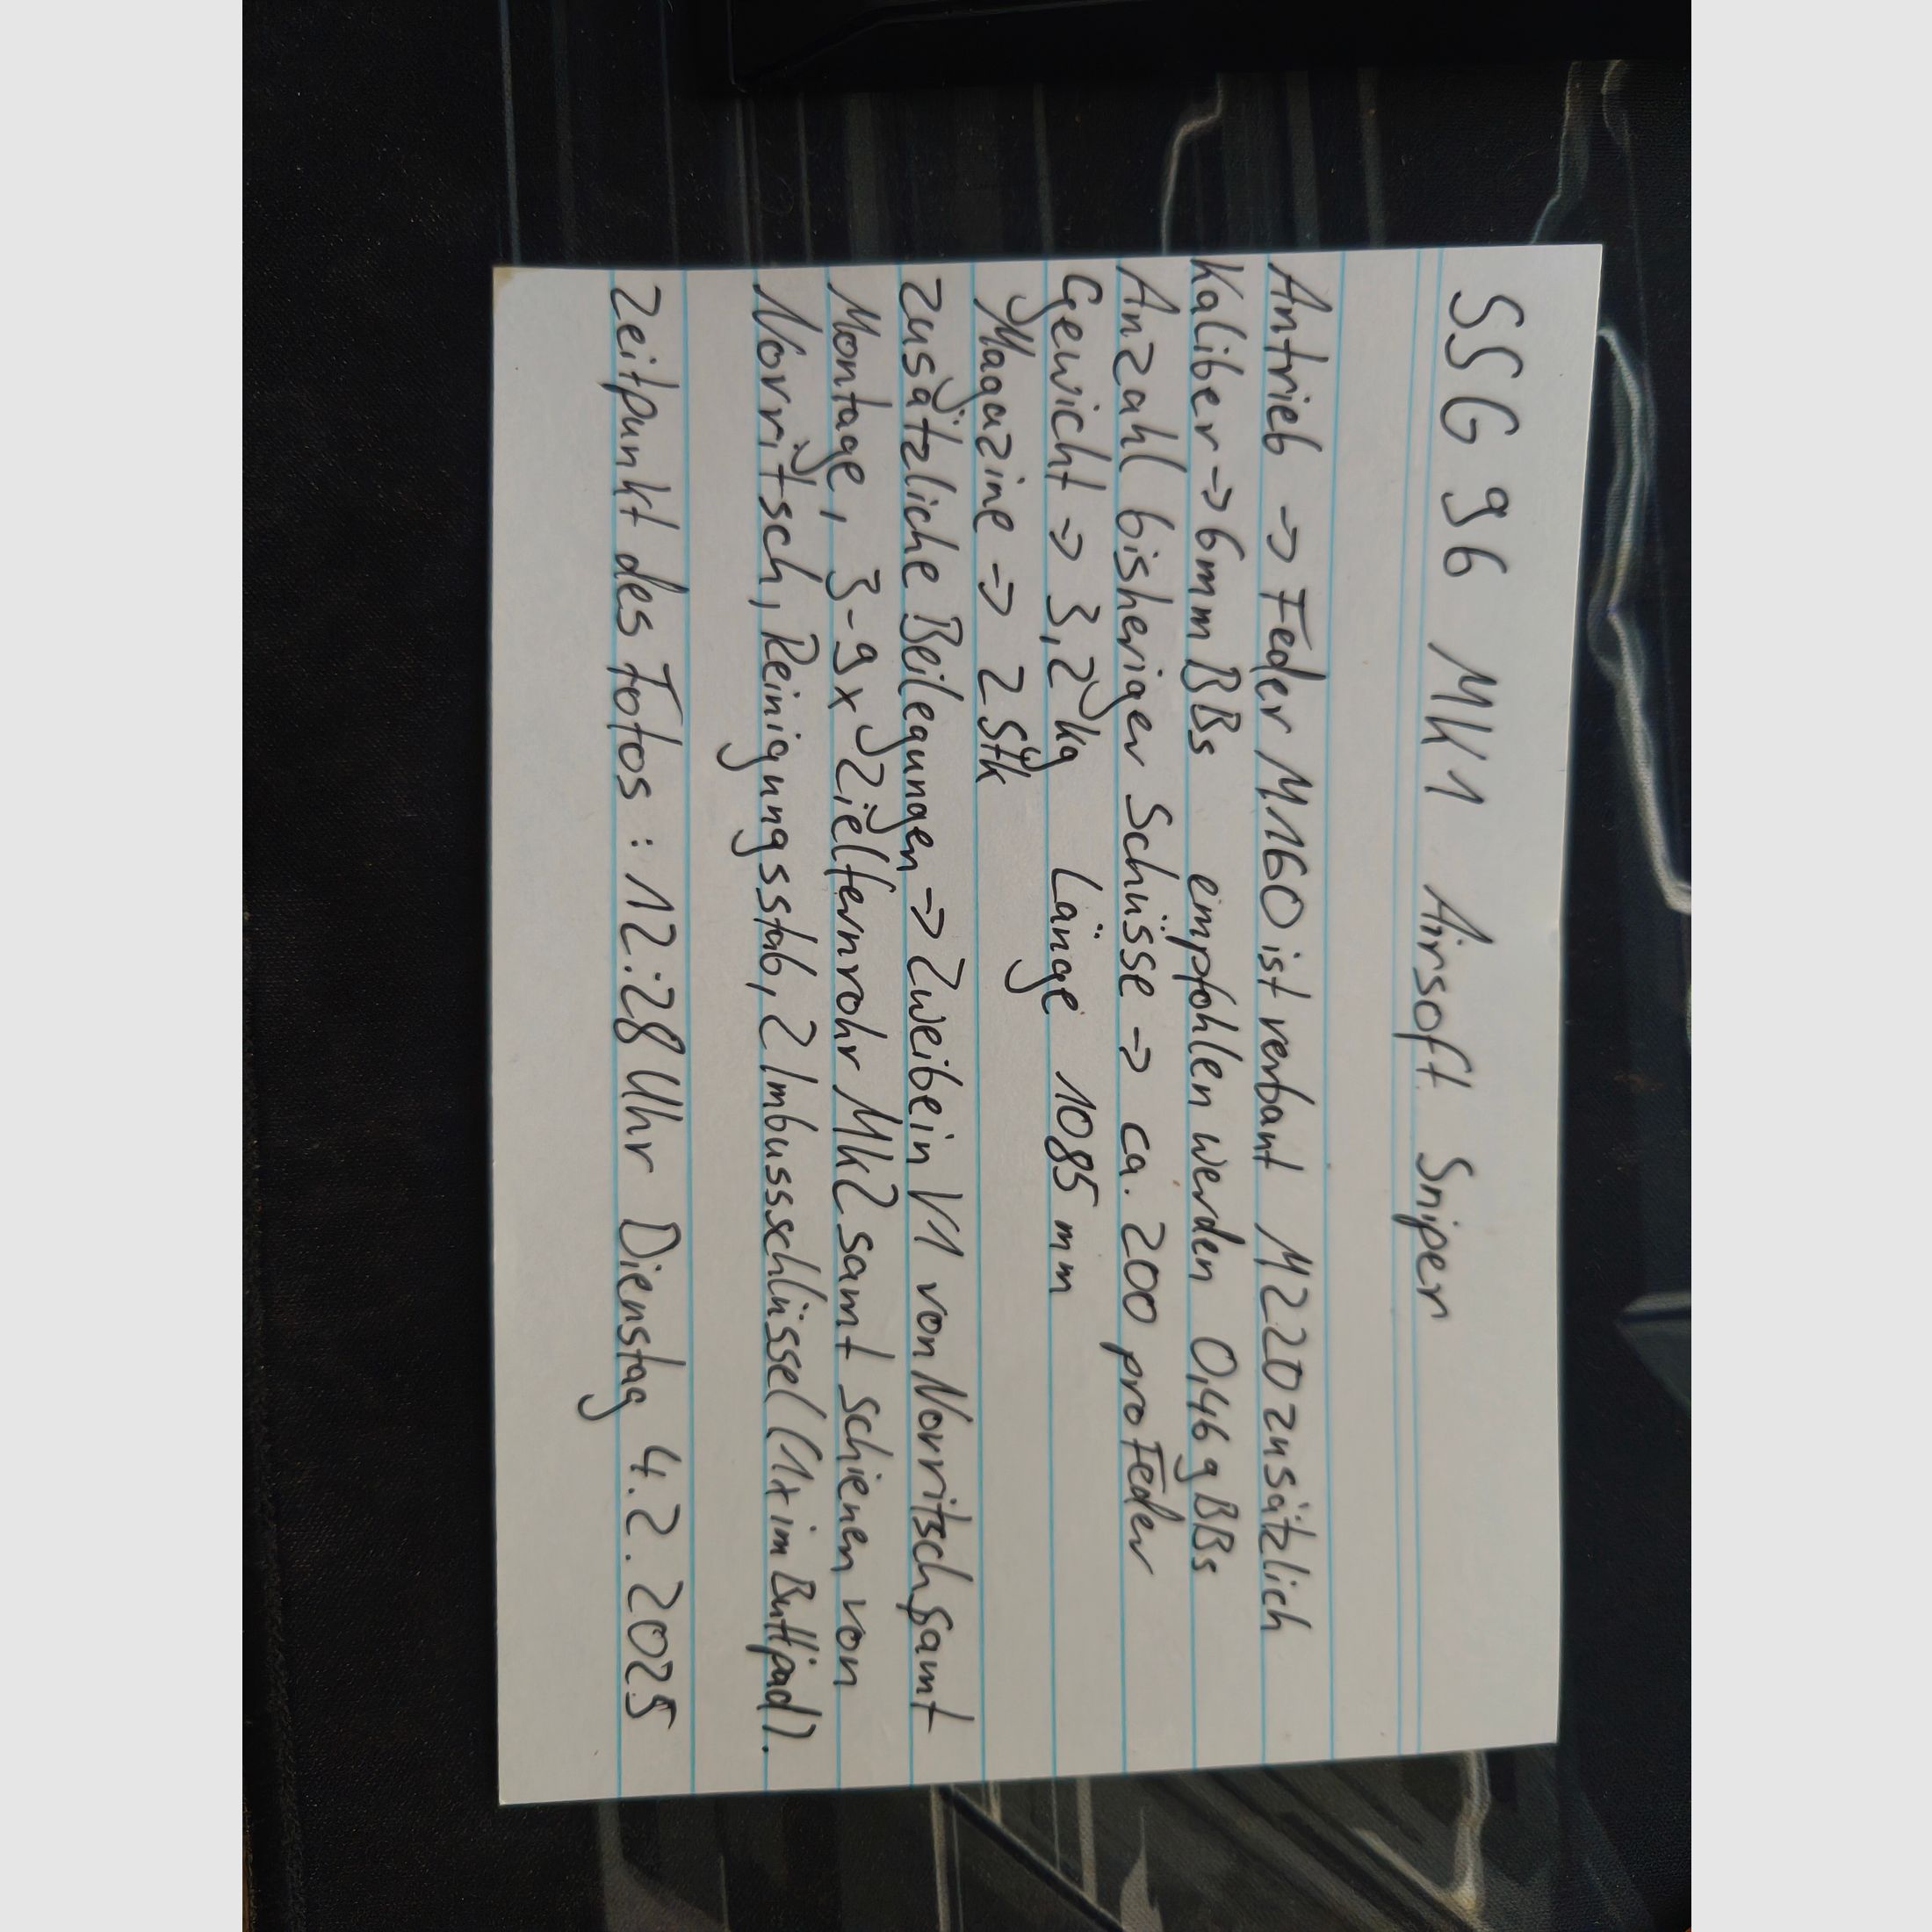 SSG 96 MK1 Airsoft Sniper
Antrieb -> Feder M160 ist verbaut M220 zusätzlich
Kaliber -> 6mm BBs empfohlen werden 0,46g BBs
Anzahl bisheriger Schüsse -> ca. 200 pro Feder
Gewicht => 3,2kg Länge 1085 mm
Magazine => 2 Stk
zusätzliche Beilegungen => Zweibein V1 von Novritsch samt
Montage, 3-9x Zielfernrohr Mk2 samt schienen von
Novritsch, Reinigungsstab, 2 Imbussschlüssel (1x im Buttpad).
Zeitpunkt des Fotos : 12:28 Uhr Dienstag 4.2.2025